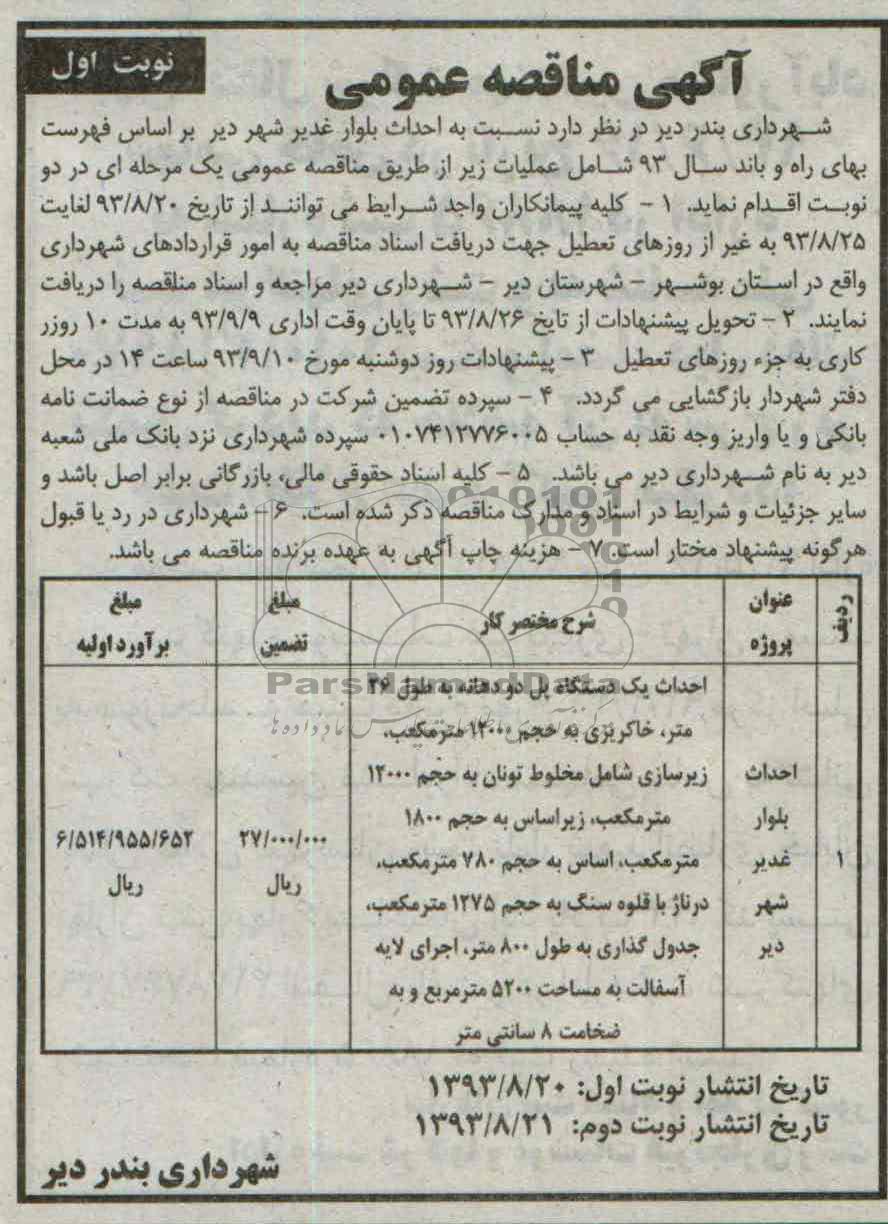 نوبت اول
آگهی مناقصه عمومی
شهرداری بندر دیر در نظر دارد نسبت به احداث بلوار غدیر شهر دیر بر اساس فهرست
بهای راه و باند سال ۹۳ شامل عملیات زیر از طریق مناقصه عمومی یک مرحله ای در دو
نوبت اقدام نماید. ۱ - کلیه پیمانکاران واجد شرایط می توانند از تاریخ ۹۳/۸/۲۰ لغایت
۹۳/۸/۲۵ به غیر از روزهای تعطیل جهت دریافت اسناد مناقصه به امور قراردادهای شهرداری
واقع در استان بوشهر - شهرستان دیر - شهرداری دیر مراجعه و اسناد مناقصه را دریافت
نمایند. ۲ - تحویل پیشنهادات از تایخ ۹۳/۸/۲۶ تا پایان وقت اداری ۹۳/۹/۹ به مدت ۱۰ روزر
کاری به جزء روزهای تعطیل ۳ - پیشنهادات روز دوشنبه مورخ ۹۳/۹/۱۰ ساعت ۱۴ در محل
دفتر شهردار بازگشایی می گردد. ۴ - سپرده تضمین شرکت در مناقصه از نوع ضمانت نامه
بانکی و یا واریز وجه نقد به حساب ۰۱۰۷۴۱۲۷۷۶۰۰۵ سپرده شهرداری نزد بانک ملی شعبه
دیر به نام شهرداری دیر می باشد. ۵ - کلیه اسناد حقوقی مالی، بازرگانی برابر اصل باشد و
سایر جزئیات و شرایط در اسناد و مدارک مناقصه ذکر شده است. ۶ - شهرداری در رد یا قبول
هرگونه پیشنهاد مختار است. ۷ - هزینه چاپ آگهی به عهده برنده مناقصه می باشد.
ردیف
عنوان
پروژه
شرح مختصر کار
مبلغ
تضمین
مبلغ
برآورد اولیه
۱
احداث
بلوار
غدیر
شهر
دیر
احداث یک دستگاه پل دو دهانه به طول ۲۶
متر، خاکریزی به حجم ۱۲۰۰۰ مترمکعب،
زیرسازی شامل مخلوط تونان به حجم ۱۲۰۰۰
مترمکعب، زیراساس به حجم ۱۸۰۰
مترمکعب، اساس به حجم ۷۸۰ مترمکعب،
درناژ با قلوه سنگ به حجم ۱۲۷۵ مترمکعب،
جدول گذاری به طول ۸۰۰ متر، اجرای لایه
آسفالت به مساحت ۵۲۰۰ مترمربع و به
ضخامت ۸ سانتی متر
۲۷/۰۰۰/۰۰۰
ریال
۶/۵۱۴/۹۵۵/۶۵۲
ریال
ParsNamadData
تاریخ انتشار نوبت اول: ۱۳۹۳/۸/۲۰
تاریخ انتشار نوبت دوم: ۱۳۹۳/۸/۲۱
شهرداری بندر دیر